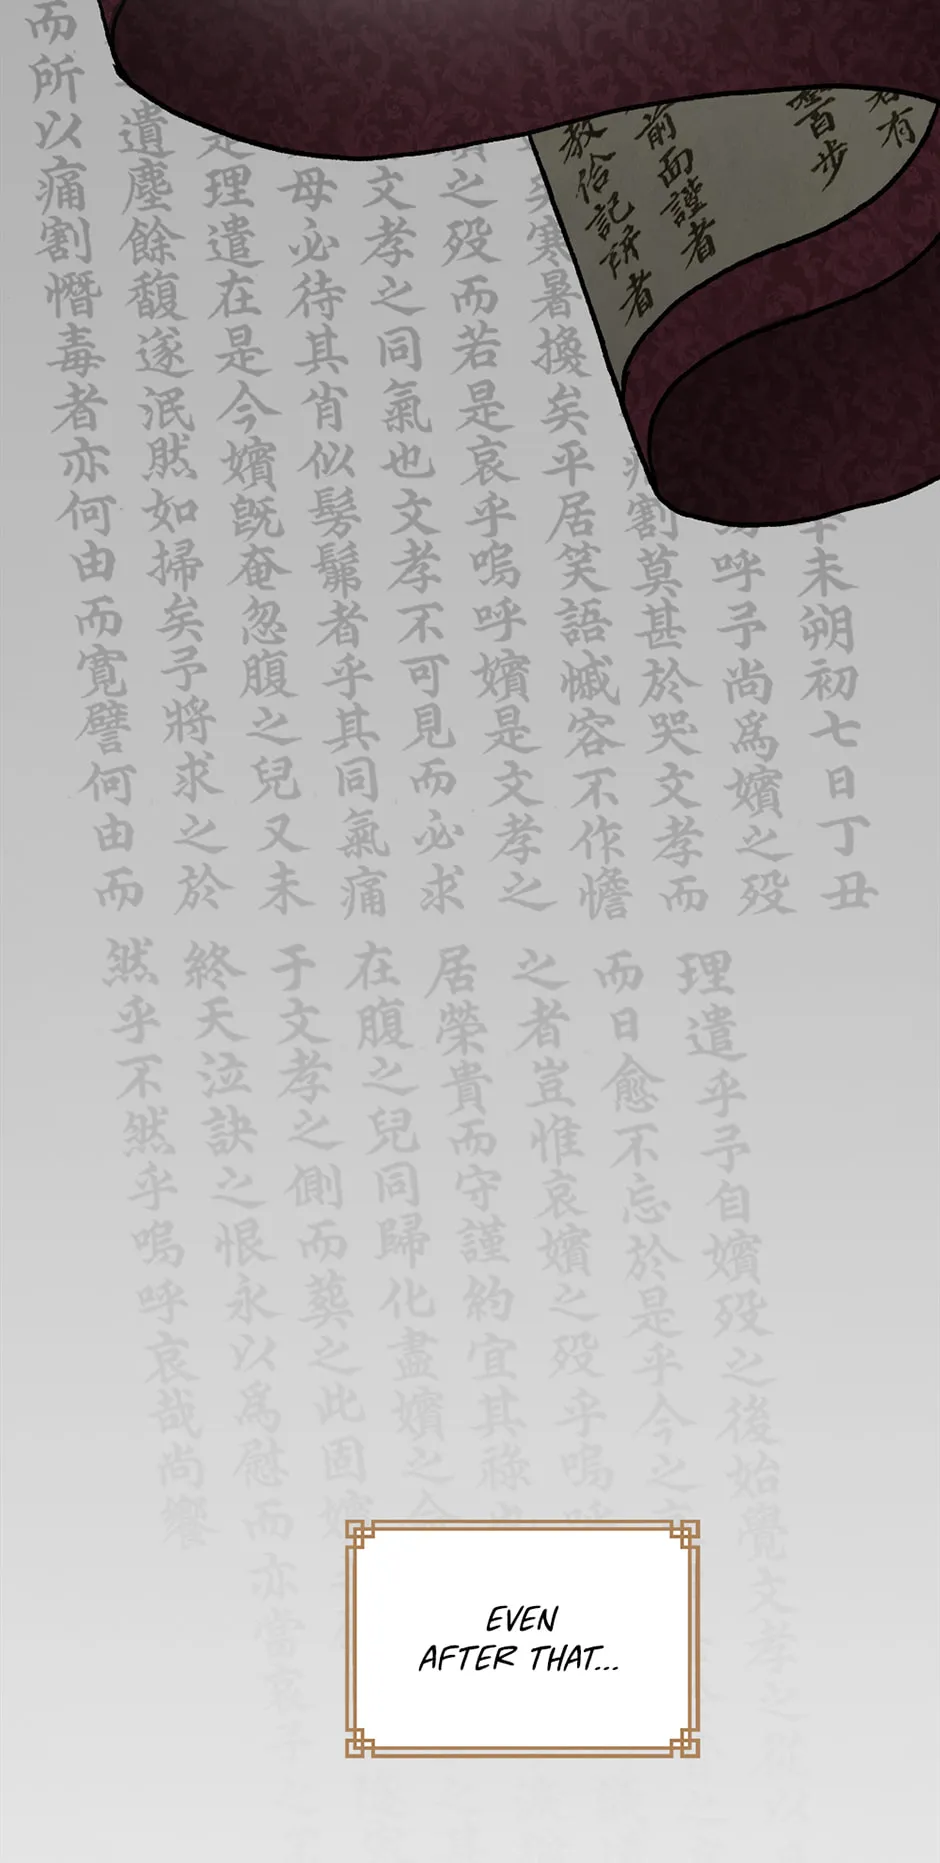 者有
百步
前面謹者
教佮記者
未朔初七日丁丑
呼予尚爲嬪之歿
割莫甚於哭文孝而
寒暑換矣平居笑語慽容不作憺
之歿而若是哀乎嗚呼嬪是文孝之
文孝之同氣也文孝不可見而必求
母必待其肖似髣髴者乎其同氣痛
是理遣在是今嬪旣奄忽腹之兒又未
遺塵餘馥遂泯然如掃矣予將求之於
而所以痛割憯毒者亦何由而寬譬何由而
理遣乎予自嬪歿之後始覺文孝之
而日愈不忘於是乎今之
之者豈惟哀嬪之歿乎嗚呼
居榮貴而守謹約宜其祿
在腹之兒同歸化盡嬪之
于文孝之側而葬之此固嬪
終天泣訣之恨永以爲慰而亦當哀予
然乎不然乎嗚呼哀哉尚饗
EVEN
AFTER THAT...